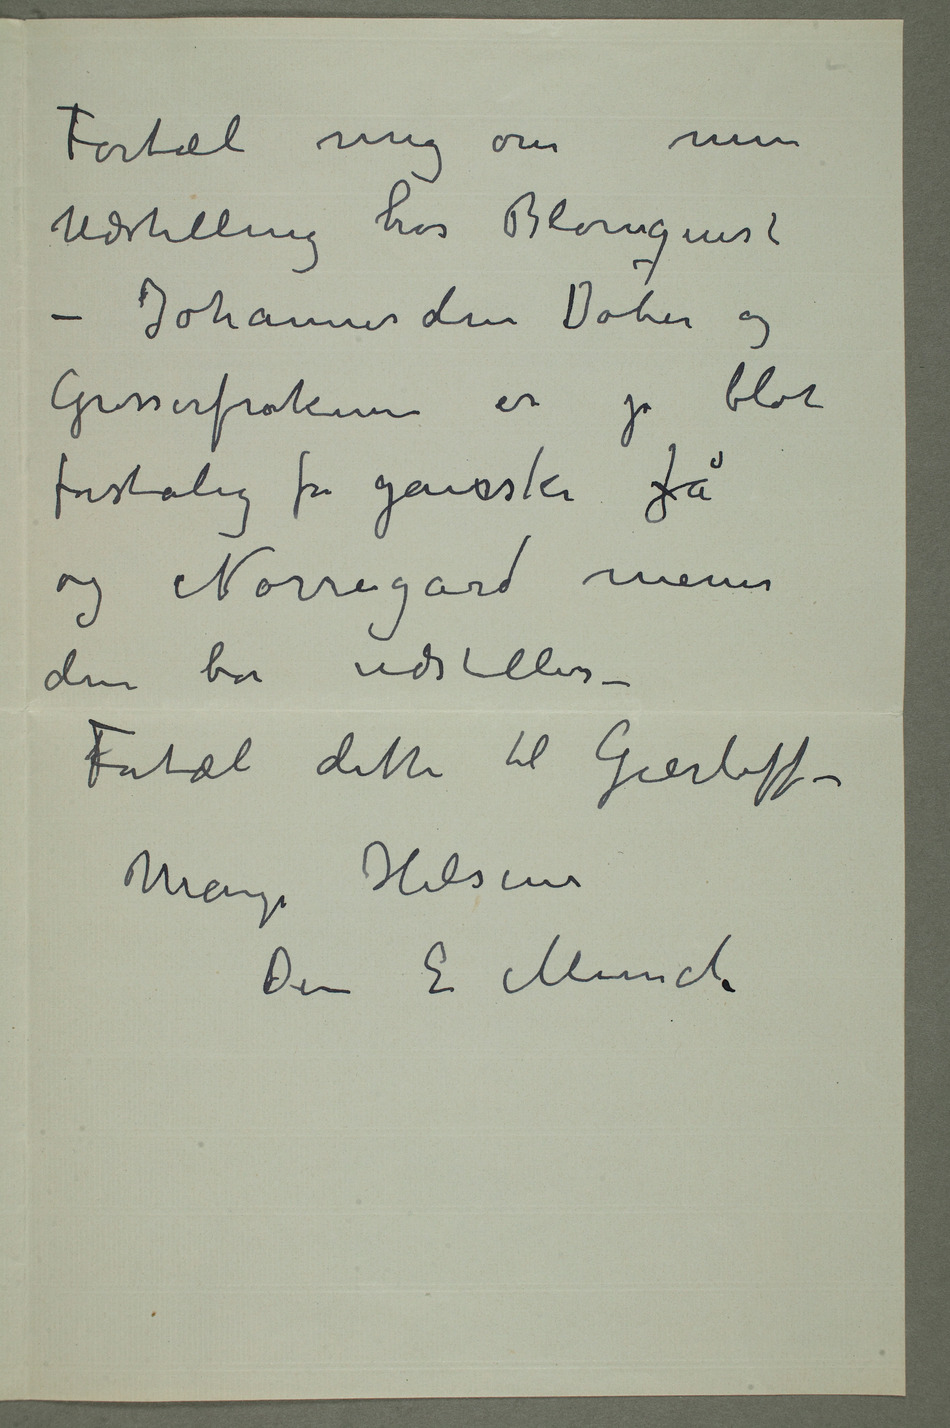 Fortæl mig om min
Udstilling hos Blomquist
– Johannes den Døber og
Grosserfrøkenen er jo blot
forståelig for ganske få
og Nørregård mener
den bør udstilles –
Fortæl dette til Gierløff –
Mange Hilsener
Din E Munch